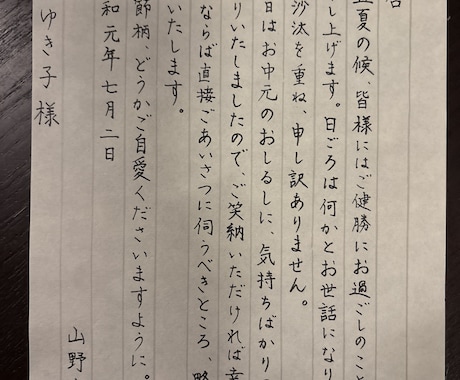 夏の候、皆様にはご健勝にお過ごしのこと
し上げます。日ごろは何かとお世話になり
沙汰を重ね、申し訳ありません。
日はお中元のおしるしに、気持ちばかり
りいたしましたので、ご笑納いただければ幸
ならば直接ごあいさつに伺うべきところ、略
いたします。
節柄、どうかご自愛くださいますように。
和元年七月二日
山野
ゆき子様